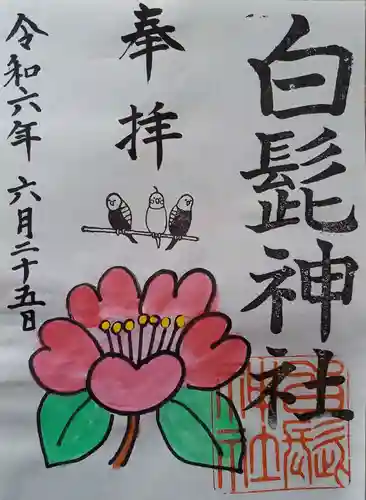 白髭神社
奉拝
令和六年 六月二十五日
白髭
神社